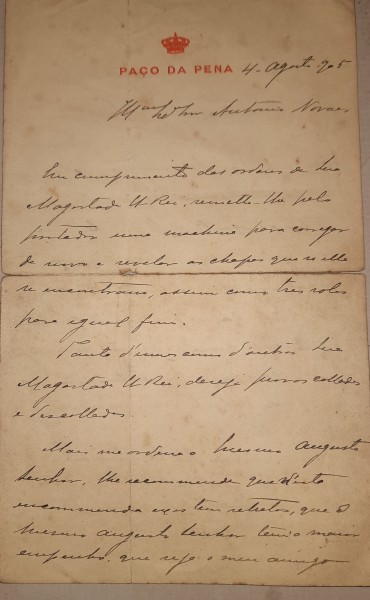 PAÇO DA PENA 4-Agosto-905
Illmo Snr Antonio Novaes
Em cumprimento das ordens de Sua
Magestade El-Rei, remetto-lhe pelo
portador uma machina para carregar
de novo e revelar as chapas que n'ella
se encontram, assim como tres rolos
para egual fim.
Tanto d'umas como d'outros Sua
Magestade El-Rei, deseja provas colladas
e descolladas.
Mais me ordena o mesmo Augusto
Senhor, lhe recommende que n'esta
encommenda tem retratos, que o
mesmo augusto Senhor tem o maior
empenho, que seja o meu amigo